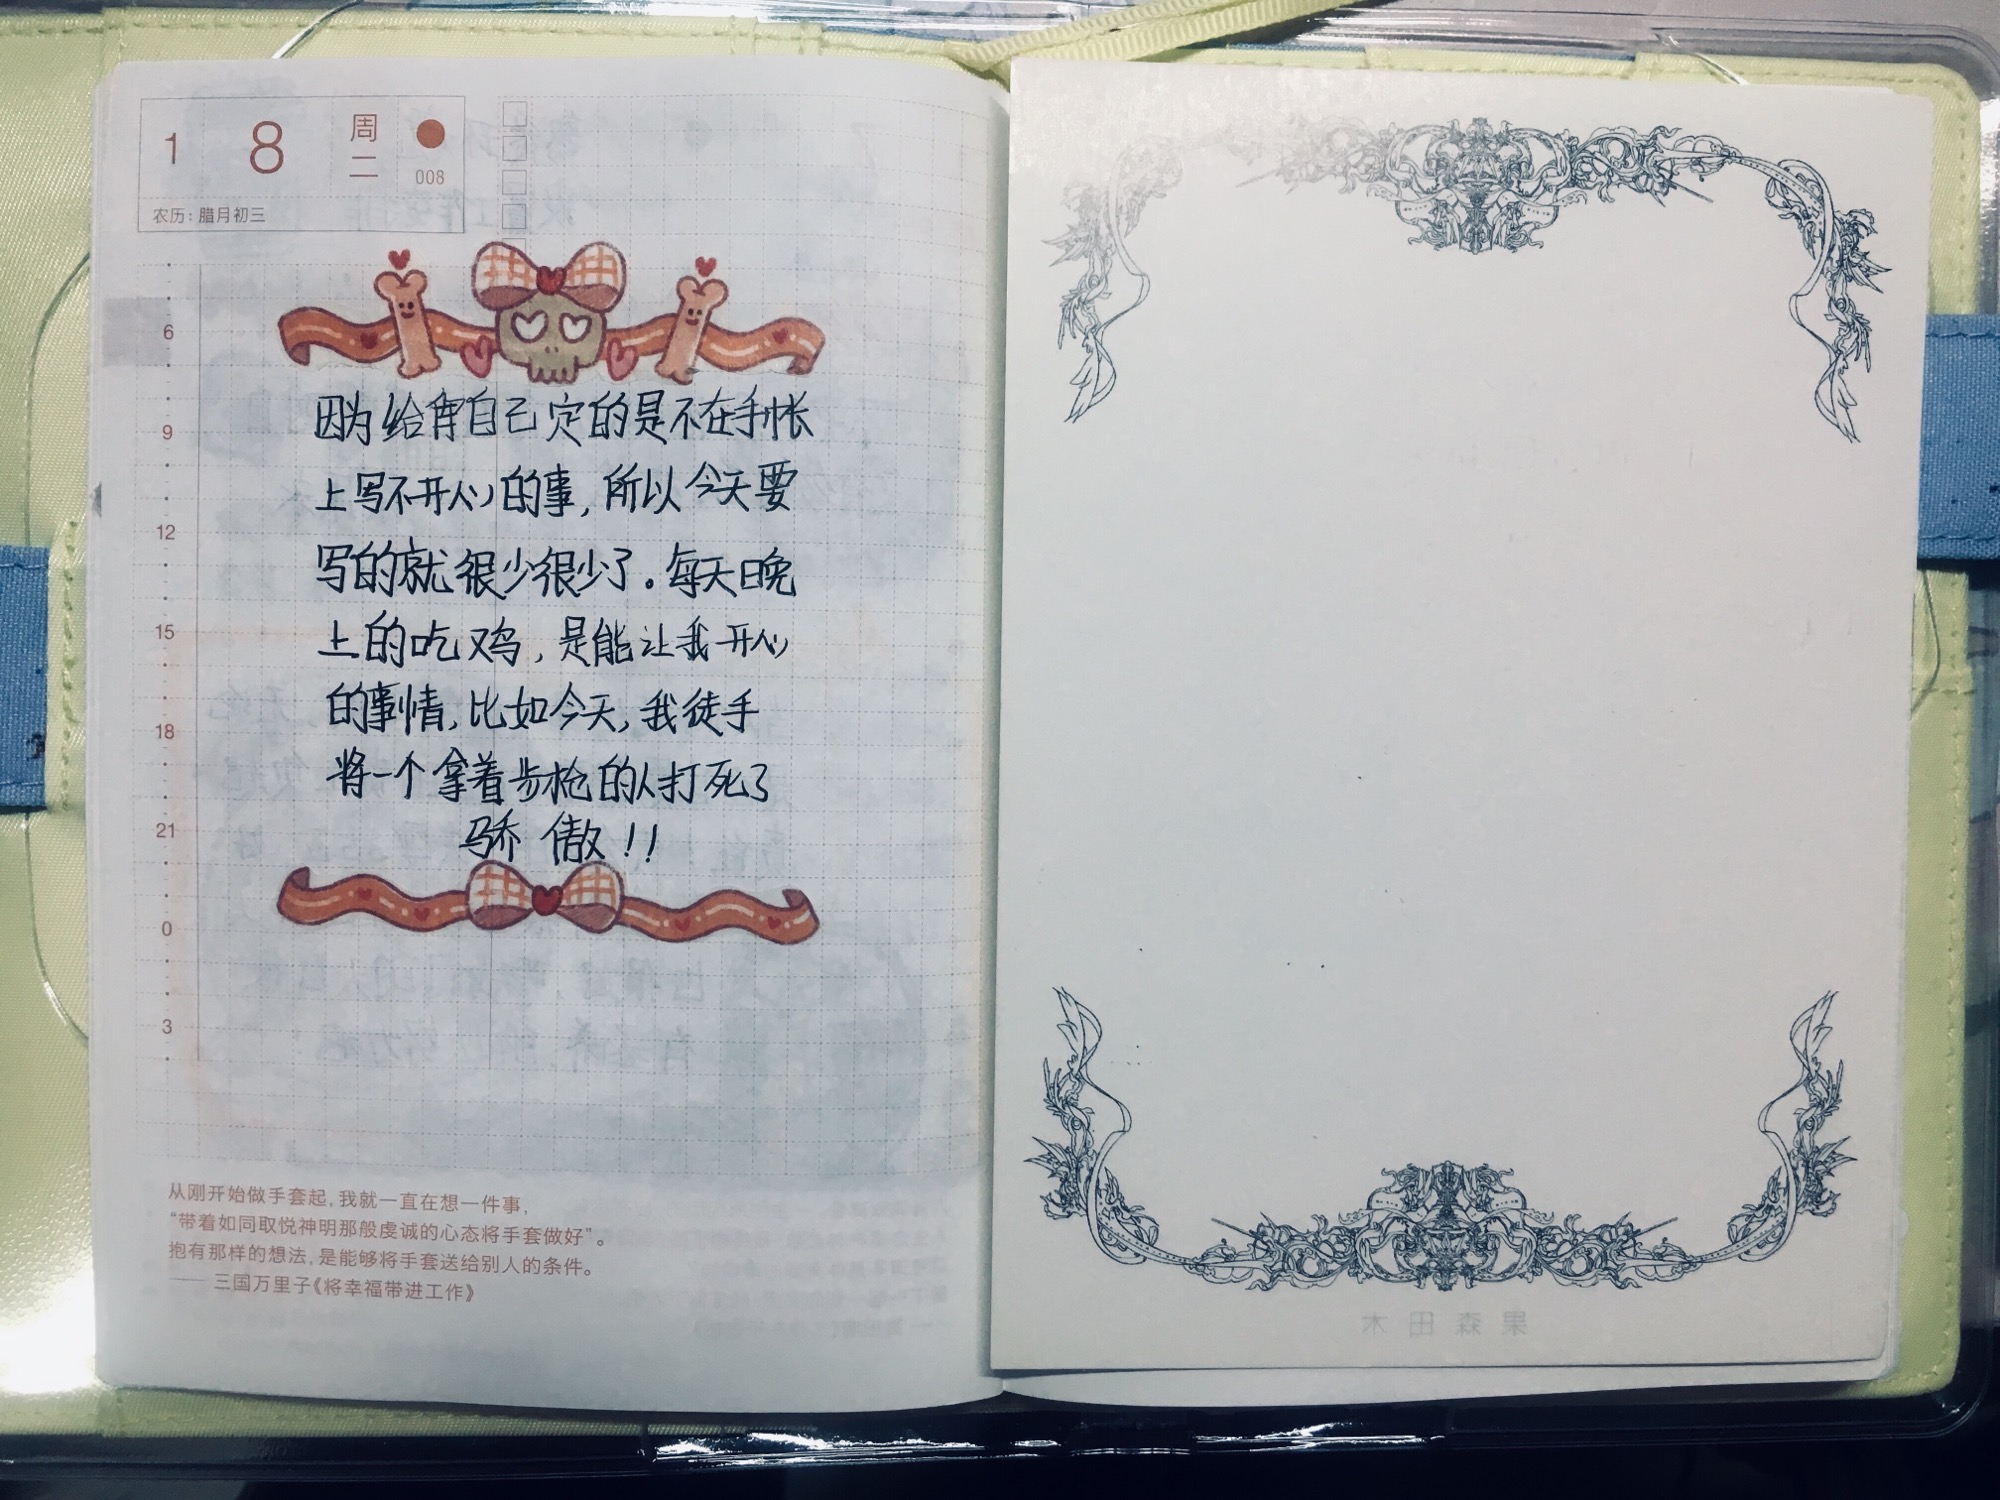 1 8 周二
008
农历：腊月初三
6
9
12
15
18
21
0
3
因为给自己定的是不在手帐
上写不开心的事，所以今天要
写的就很少很少了。每天晚
上的吃鸡，是能让我开心
的事情，比如今天，我徒手
将一个拿着步枪的人打死了
骄傲！！
从刚开始做手套起，我就一直在想一件事，
“带着如同取悦神明那般虔诚的心态将手套做好”。
抱有那样的想法，是能够将手套送给别人的条件。
—— 三国万里子《将幸福带进工作》
木田森果